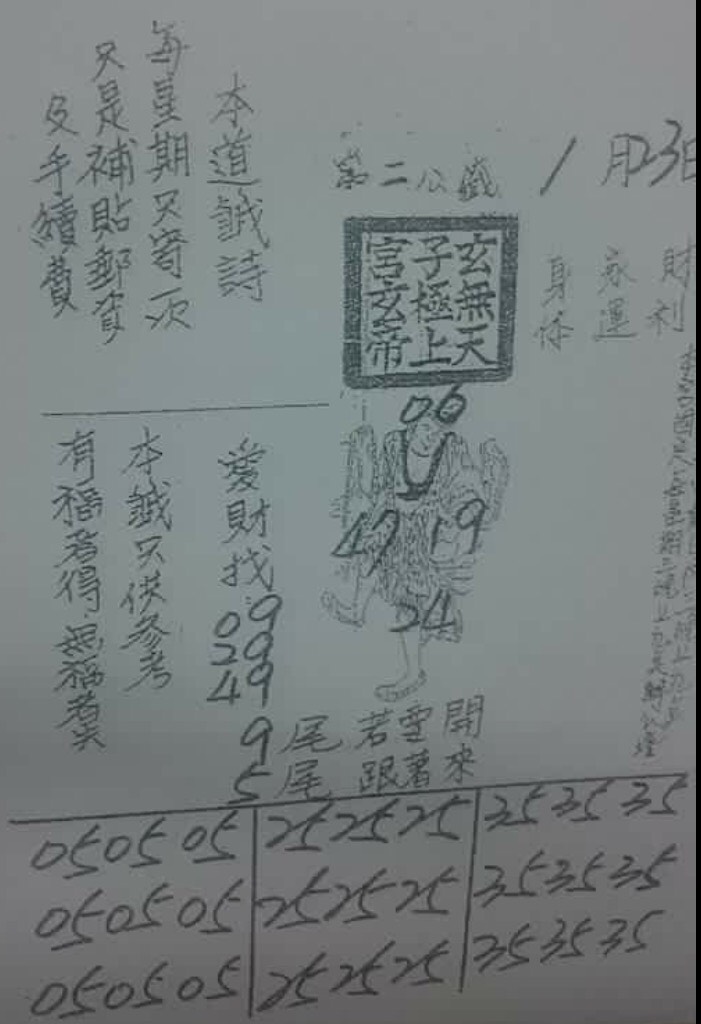 1月23日
財利
家運
身体
第二公籤
玄無天
子極上
宮玄帝
06
47 19
24
本道誠詩
每星期只寄一次
只是補貼郵資
及手續費
愛財找
09
29
49
本籤只供參考
有福者得無福者失
9尾若雪開
5尾跟著來
05 05 05 25 25 25 35 35 35
05 05 05 25 25 25 35 35 35
05 05 05 25 25 25 35 35 35